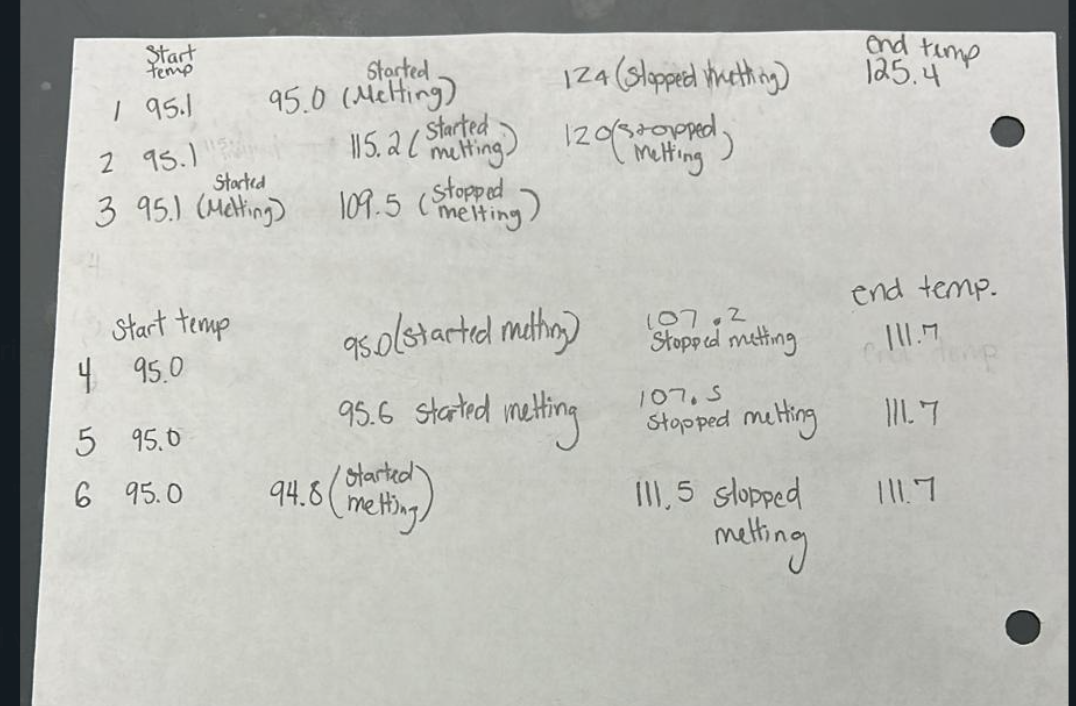 Start temp
end temp
1 95.1 95.0 (Started Melting) 124 (Stopped melting) 125.4
2 95.1 115.2 (Started melting) 120 (Stopped Melting)
3 95.1 (Started Melting) 109.5 (Stopped melting)
4
Start temp
end temp.
4 95.0 95.0 (started melting) 107.2 Stopped melting 111.7
5 95.0 95.6 started melting 107.5 Stopped melting 111.7
6 95.0 94.8 (started melting) 111.5 stopped melting 111.7